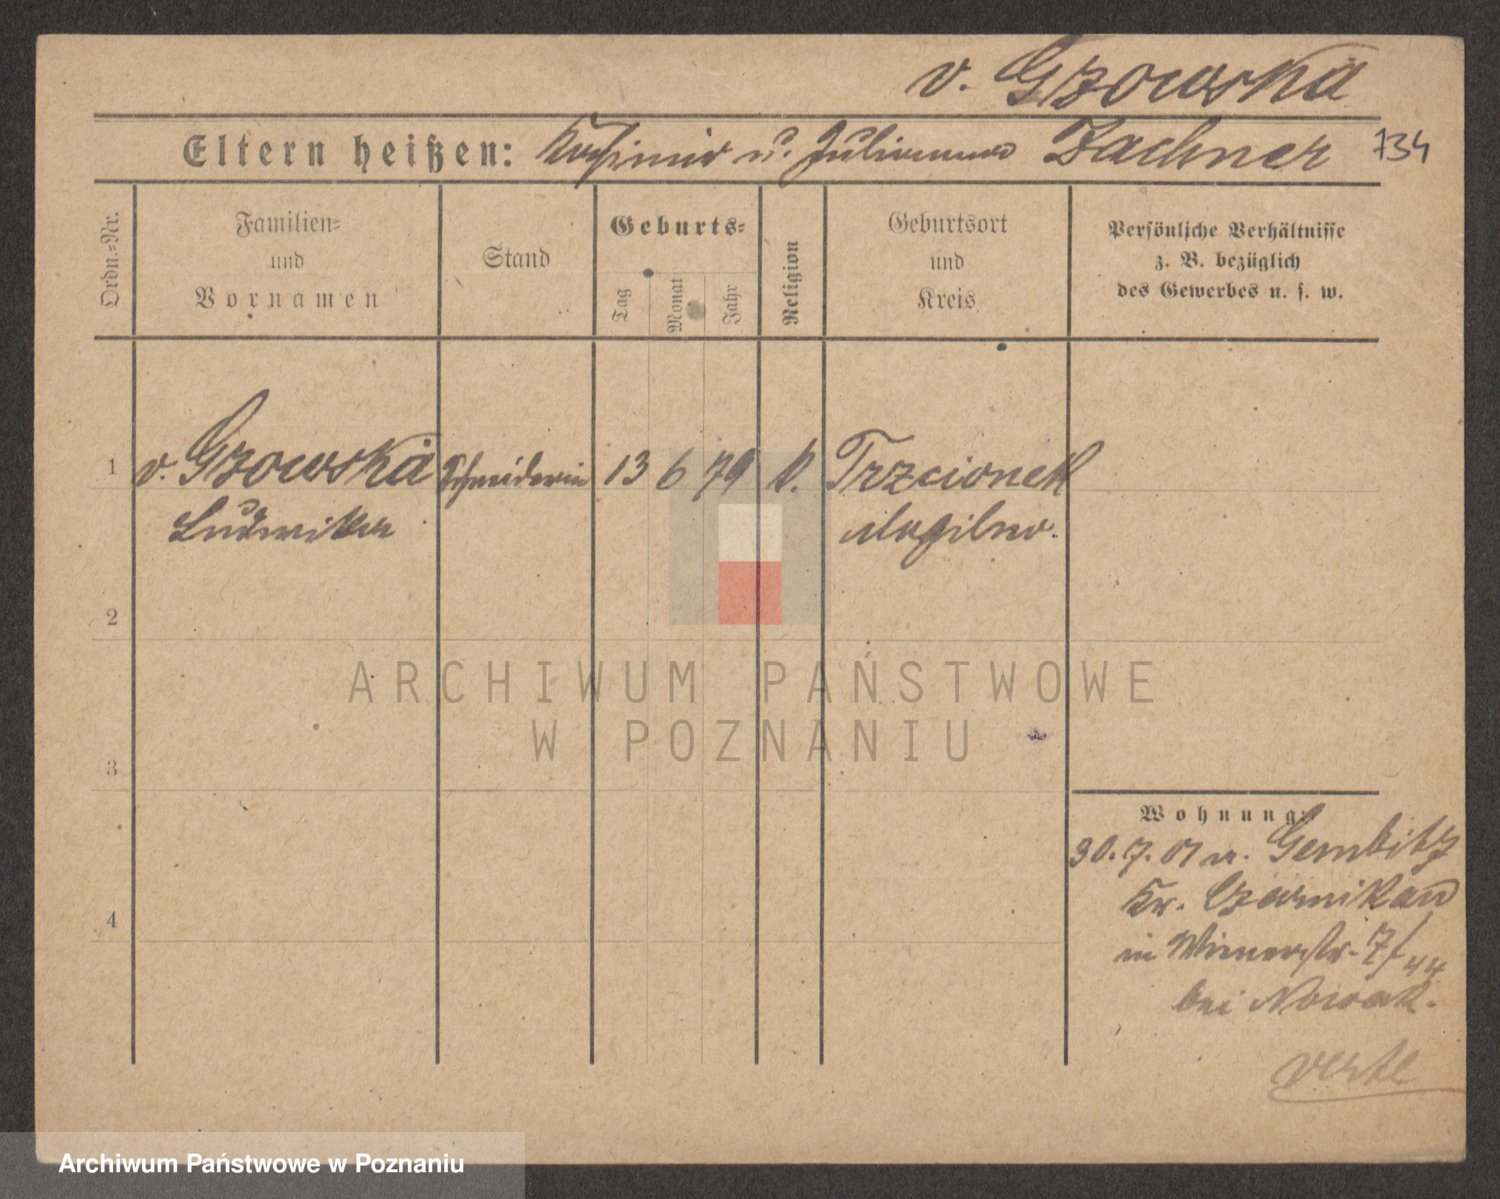 v. Gzowska
Eltern heißen: Kasimir u. Julianna Zachner 734
Ordn.=Nr.
Familien=
und
Vornamen
Stand
Geburts=
Tag
Monat
Jahr
Religion
Geburtsort
und
Kreis
Persönliche Verhältnisse
z. B. bezüglich
des Gewerbes u. s. w.
1 v. Gzowska Schneiderin 13 6 79 k. Trzcionek
Ludwika Mogilno.
2
3
4
Wohnung:
30.7.01 v. Gembitz
Kr. Czarnikau
in Wienerstr. 7/44
bei Nowak.
verte
ARCHIWUM PAŃSTWOWE
W POZNANIU
Archiwum Państwowe w Poznaniu